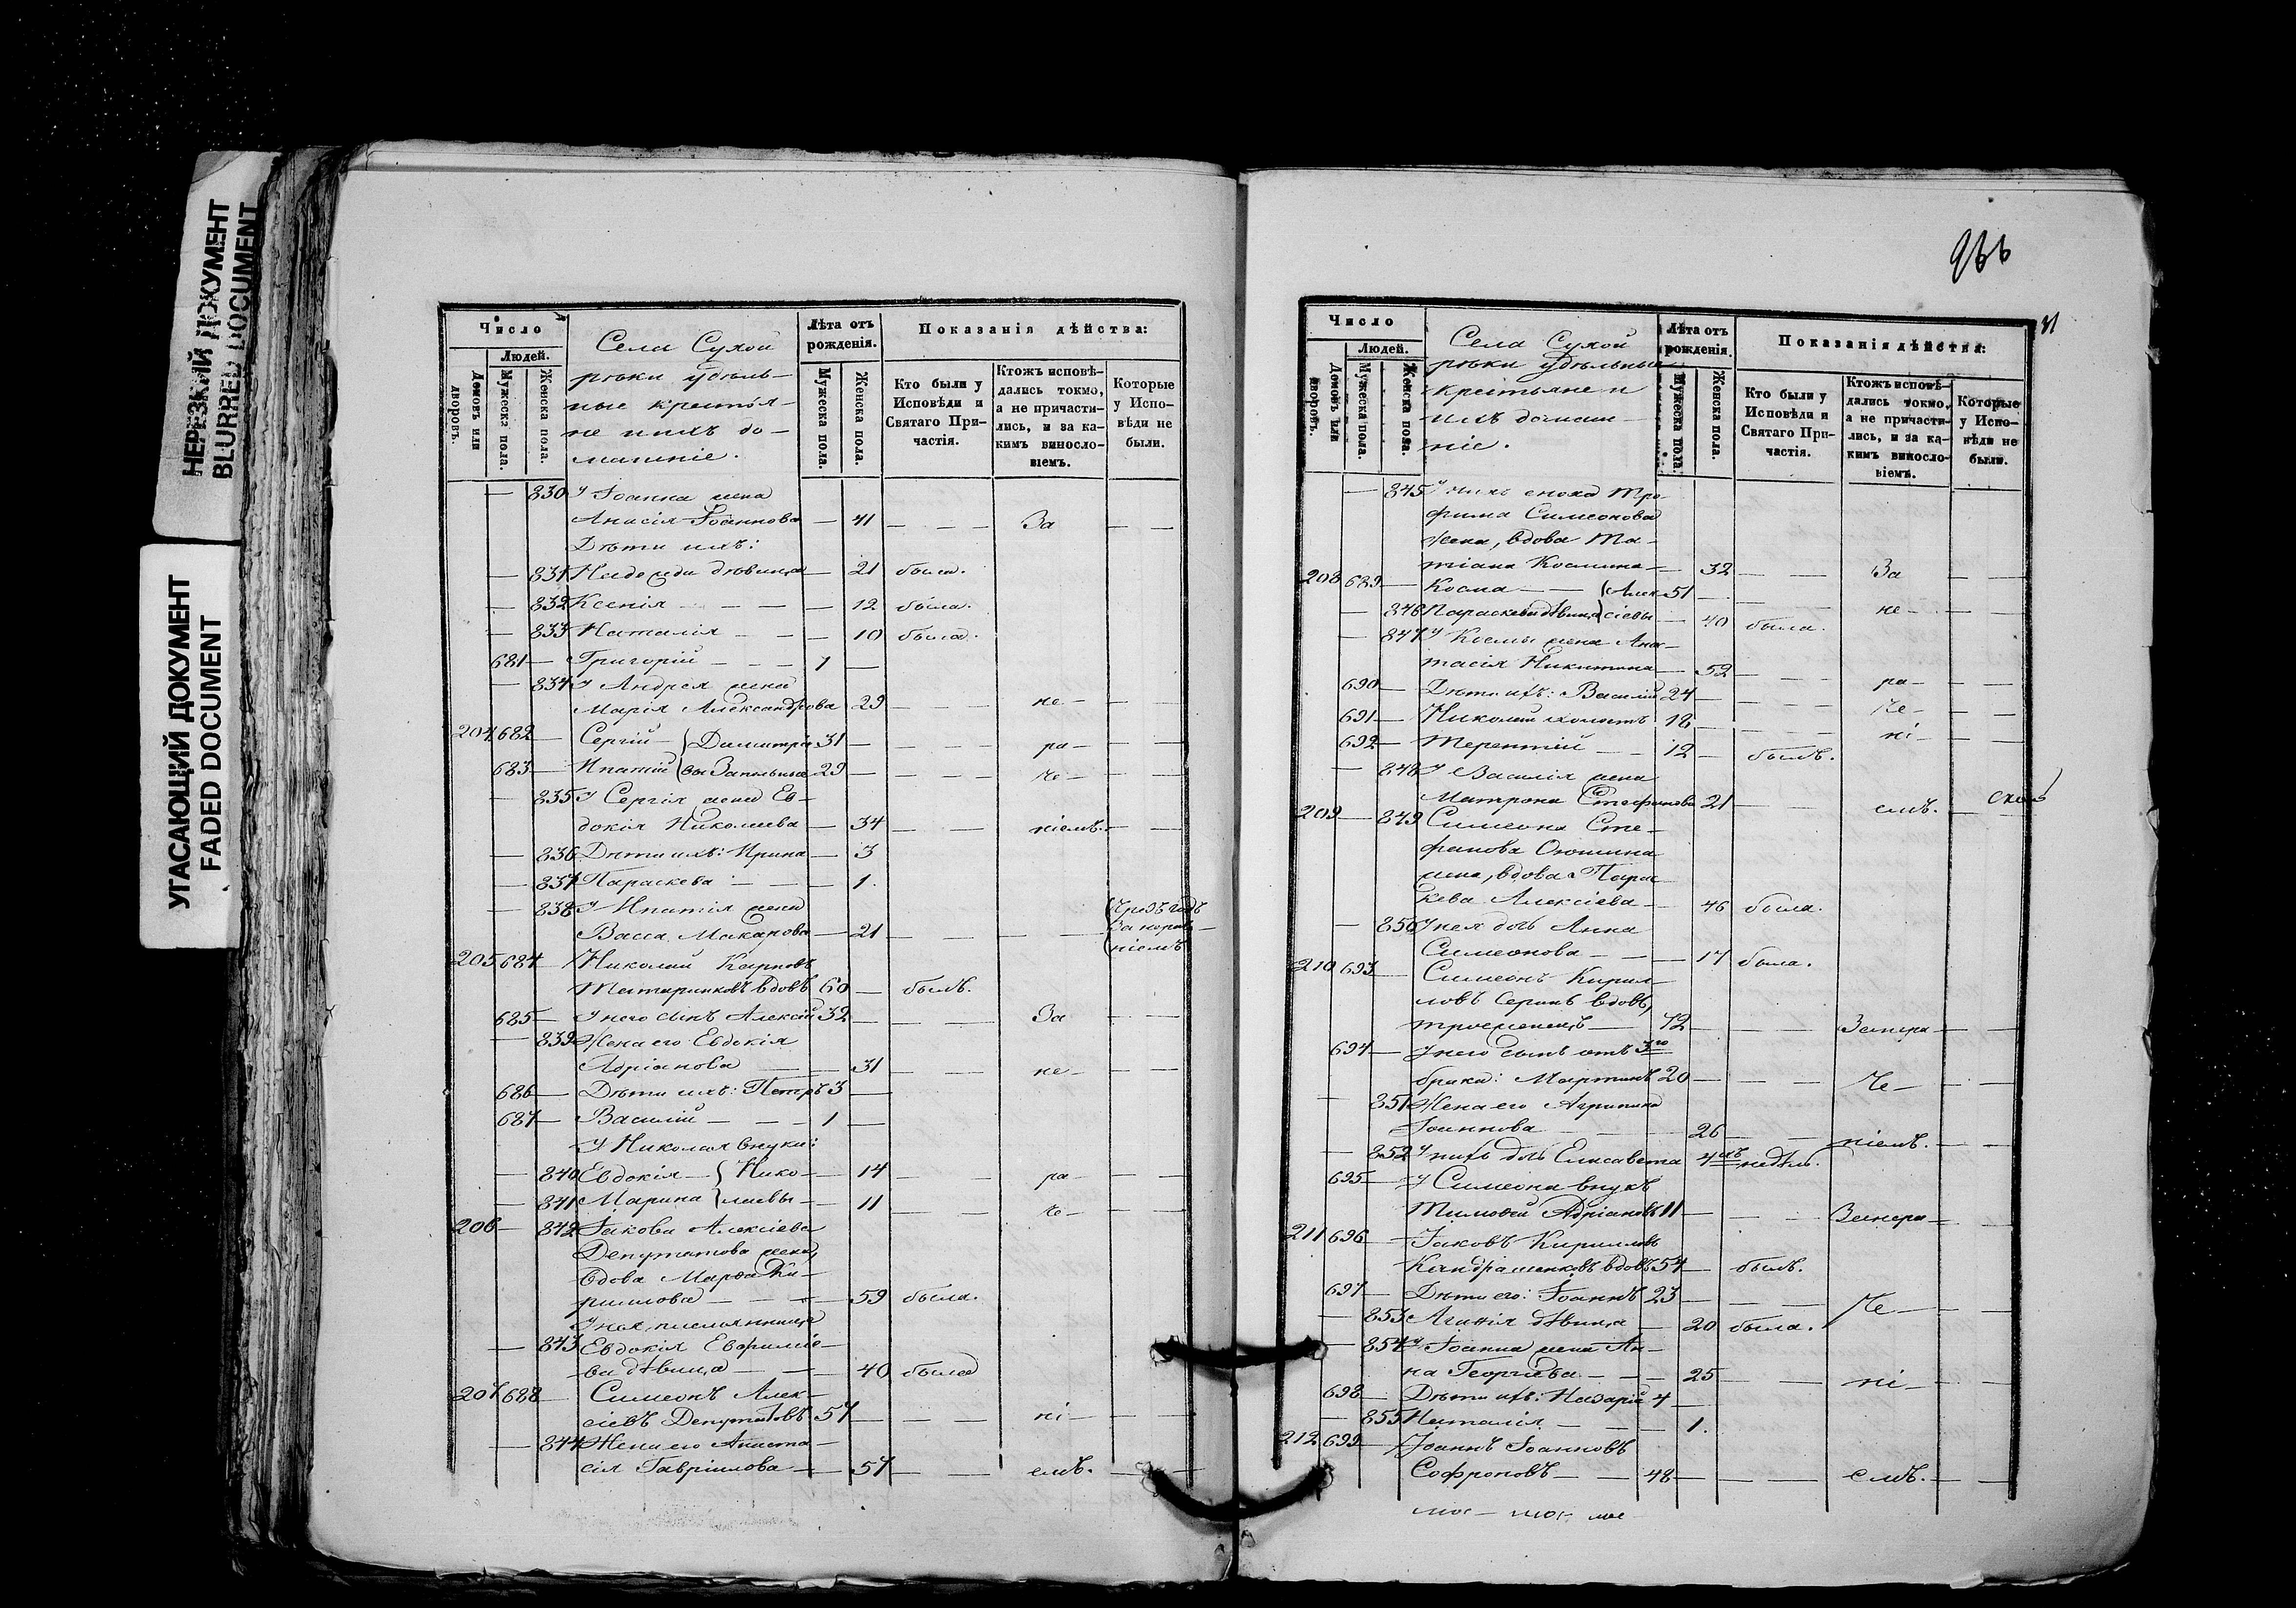 НЕРЕЗКИЙ ДОКУМЕНТ
BLURRED DOCUMENT
УГАСАЮЩИЙ ДОКУМЕНТ
FADED DOCUMENT
Число
Людей.
Домовъ или дворовъ.
Мужеска пола.
Женска пола.
Села Сухой
рѣки удѣль-
ные крестья-
не и ихъ до-
машніе.
Лѣта отъ рожденія.
Мужеска пола.
Женска пола.
Показанія дѣйства:
Кто были у Исповѣди и Святаго При-частія.
Ктожъ исповѣ-дались токмо, а не причасти-лись, и за ка-кимъ виносло-віемъ.
Которые у Испо-вѣди не были.
— 830 У Іоанна жена
Анисія Іоаннова — 41 — — — За — —
Дѣти ихъ:
— 831 Надежда дѣвица — 21 была.
— 832 Ксенія — — — 12 была.
— 833 Наталія — — 10 была.
681 — Григорій — — — 1 —
— 834 У Андрея жена
Марія Александрова 29 — — — не — — —
204 682 — Сергій — Димитріе 31 — — — — ра — — —
683 — Ипатій вы Запольных 29 — — — — че — — —
— 835 У Сергія жена Ев-
докія Николаева — 34 — — ніемъ. — —
— 836 Дѣти ихъ: Ирина — 3
— 837 Параскева — — — 1.
— 838 У Ипатія жена
Васса Макарова — 21 — — — Чрезъ годъ
ніемъ
205 684 — Николай Карповъ
вдовъ 60 — былъ.
685 — У него сынъ Алексій 32 — — — За — —
— 839 Жена его Евдокія
Адріанова — 31 — — не — — —
686 — Дѣти ихъ: Петръ 3 —
687 — Василій — — — 1 —
У Николая внуки:
— 840 Евдокія — Нико- — 14 — — ра — — —
— 841 Марина лаевы — 11 — — че — — —
206 — 842 Іакова Алексіева
Депутатова жена,
вдова Марѳа Ки-
риллова — — — 59 была.
У нея племянница
— 843 Евдокія Евфиміе-
ва дѣвица — — 40 была
207 688 — Симеонъ Алек-
сіевъ Депутатовъ 57 — — — ні — — —
— 844 Жена его Анаста-
сія Гавріилова — 57 — — емъ. — —
Число
Людей.
Домовъ или дворовъ.
Мужеска пола.
Женска пола.
Села Сухой
рѣки удѣльные
крестьяне и
ихъ домаш-
ніе.
Лѣта отъ рожденія.
Мужеска пола.
Женска пола.
Показанія дѣйства:
Кто были у Исповѣди и Святаго При-частія.
Ктожъ исповѣ-дались токмо, а не причасти-лись, и за ка-кимъ виносло-віемъ.
Которые у Испо-вѣди не были.
— 845 У нихъ сноха Тро-
фима Симеонова
жена, вдова Та-
тіана Космина — 32 — — За — —
208 689 — Косма — — Алек- 51 — — — не — — —
— 846 Параскева дѣвица сіевы — 40 была.
— 847 У Космы жена Анас-
тасія Никитина — 52 — — — ра — — —
690 — Дѣти ихъ: Василій 24 — — — — Че — — —
691 — Николай холостъ 18 — — — — ні — — —
692 — Терентій — — 12 — былъ.
— 848 У Василія жена
Матрона Стефанова 21 — — емъ. — —
209 — 849 Симеона Сте-
фанова
жена, вдова Парас-
кева Алексіева — 46 была.
— 850 У нея дочь Анна
Симеонова — — — 17 была.
210 693 — Симеонъ Кирил-
ловъ вдовъ,
троеженецъ — 72 — — — Занера — — —
694 — У него сынъ отъ 3го
брака: Мартинъ 20 — — — — Че — — —
— 851 Жена его Агрипина
Іоаннова — 26 — — ніемъ. — —
— 852 У нихъ дочь Елисавета 4хъ недѣль.
695 — У Симеона внукъ
Тимоѳей Адріановъ 11 — — — — Занера — — —
211 696 — Іаковъ Кирилловъ
Кандрашенковъ вдовъ 54 — былъ.
697 — Дѣти его: Іоаннъ 23 — — — — Че — — —
— 853 Агнія дѣвица — 20 была.
— 854 У Іоанна жена Ан-
на Георгіева — — 25 — — ні — — —
698 — Дѣти ихъ: Назарій 4 —
— 855 Наталія — — — 1.
212 699 — Іоаннъ Іоанновъ
Софроновъ — — 48 — — — емъ. — —